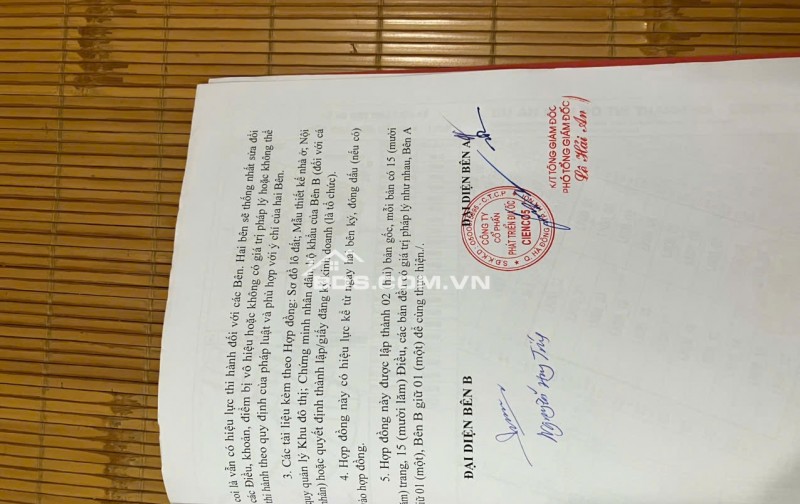 coi là vẫn có hiệu lực thi hành đối với các Bên. Hai bên sẽ thống nhất sửa đổi
các Điều, khoản, điểm bị vô hiệu hoặc không có giá trị pháp lý hoặc không thể
thi hành theo quy định của pháp luật và phù hợp với ý chí của hai Bên.
3. Các tài liệu kèm theo Hợp đồng: Sơ đồ lô đất; Mẫu thiết kế nhà ở; Nội
quy quản lý Khu đô thị; Chứng minh nhân dân, Hộ khẩu của Bên B (đối với cá
nhân) hoặc quyết định thành lập/giấy đăng ký kinh doanh (là tổ chức).
4. Hợp đồng này có hiệu lực kể từ ngày hai bên ký, đóng dấu (nếu có)
vào hợp đồng.
5. Hợp đồng này được lập thành 02 (hai) bản gốc, mỗi bản có 15 (mười
lăm) trang, 15 (mười lăm) Điều, các bản đều có giá trị pháp lý như nhau, Bên A
giữ 01 (một), Bên B giữ 01 (một) để cùng thực hiện./.
ĐẠI DIỆN BÊN B
ĐẠI DIỆN BÊN A
Nguyễn Huy
S.Đ.K.K.D
C.T.C.P
CÔNG TY
CỔ PHẦN
PHÁT TRIỂN ĐỊA ỐC
CIENCO5
Q. HÀ ĐÔNG
K/T TỔNG GIÁM ĐỐC
PHÓ TỔNG GIÁM ĐỐC
Lê Hải An
BDS.COM.VN